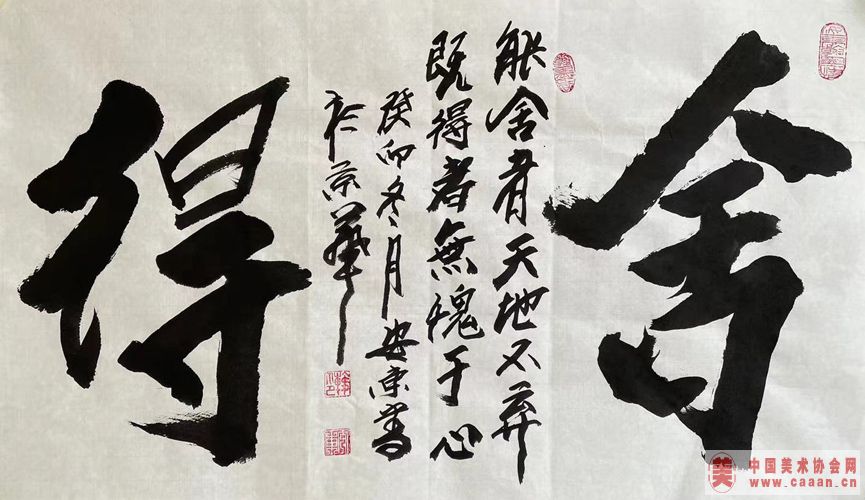 舍
能舍者天地不弃
既得者無愧于心
癸卯冬月安東書
於京華
得
美
中国美术协会网
www.caaan.cn